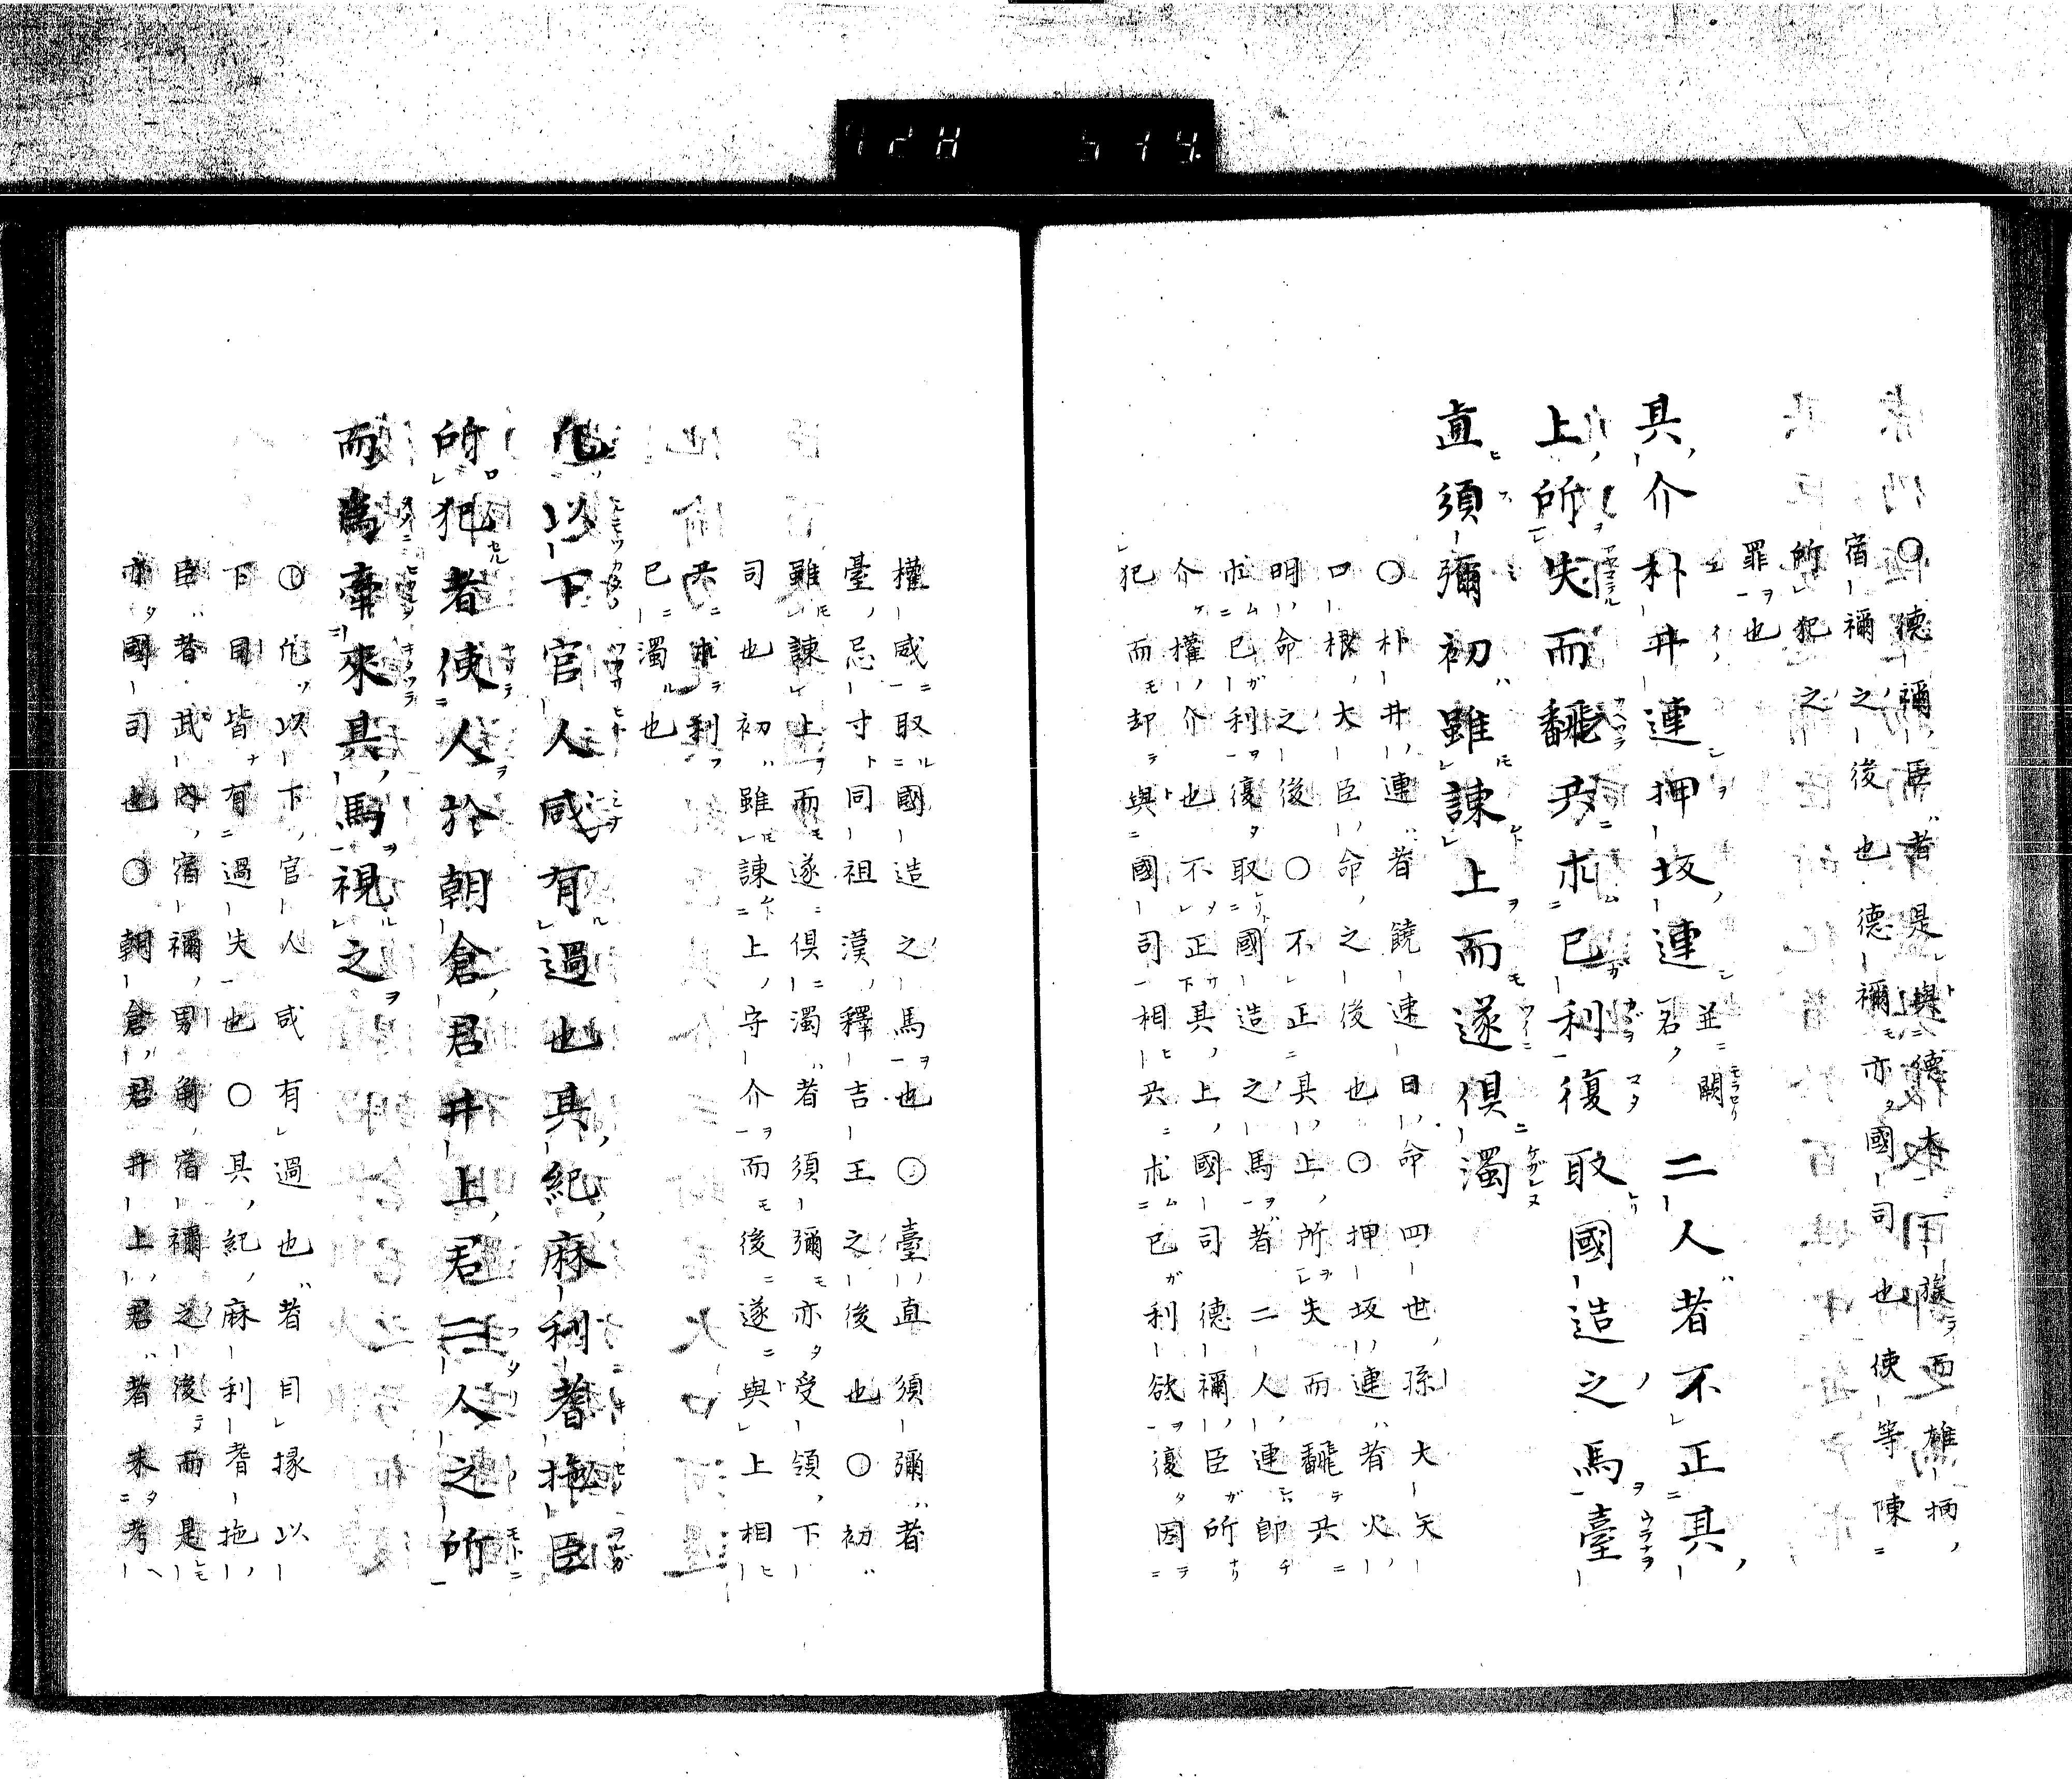 ○德禰臣者是與德本一族而雄柄
宿禰之後也德禰亦國司也使等陳
所犯之
罪也
具介朴井連押坂連 並闕名 二人者不正其
上所失而翻共求己利復取國造之馬臺
直須彌初雖諫上而遂俱濁
○朴井連者饒速日命四世孫大矢
口根大臣命之後也○押坂連者火
明命之後○不正其上所失而翻共
求己利復取國造之馬者二人連即
介權介也不正其上國司德禰臣所
犯而却與國司相共求己利欲復因
權威取國造之馬也○臺直須彌者
臺忌寸同祖漢釋吉王之後也○初
雖諫上而遂俱濁者須彌亦受領下
司也初雖諫上守介而後遂與上相
共求利
己濁也
凡以下官人咸有過也其紀麻利耆拖臣
所犯者使人於朝倉君井上君二人之所
而為牽來其馬視之
○凡以下官人咸有過也者目掾以
下目皆有過失也○其紀麻利耆拖
臣者武內宿禰男角宿禰之後而是
亦國司也○朝倉君井上君者未考